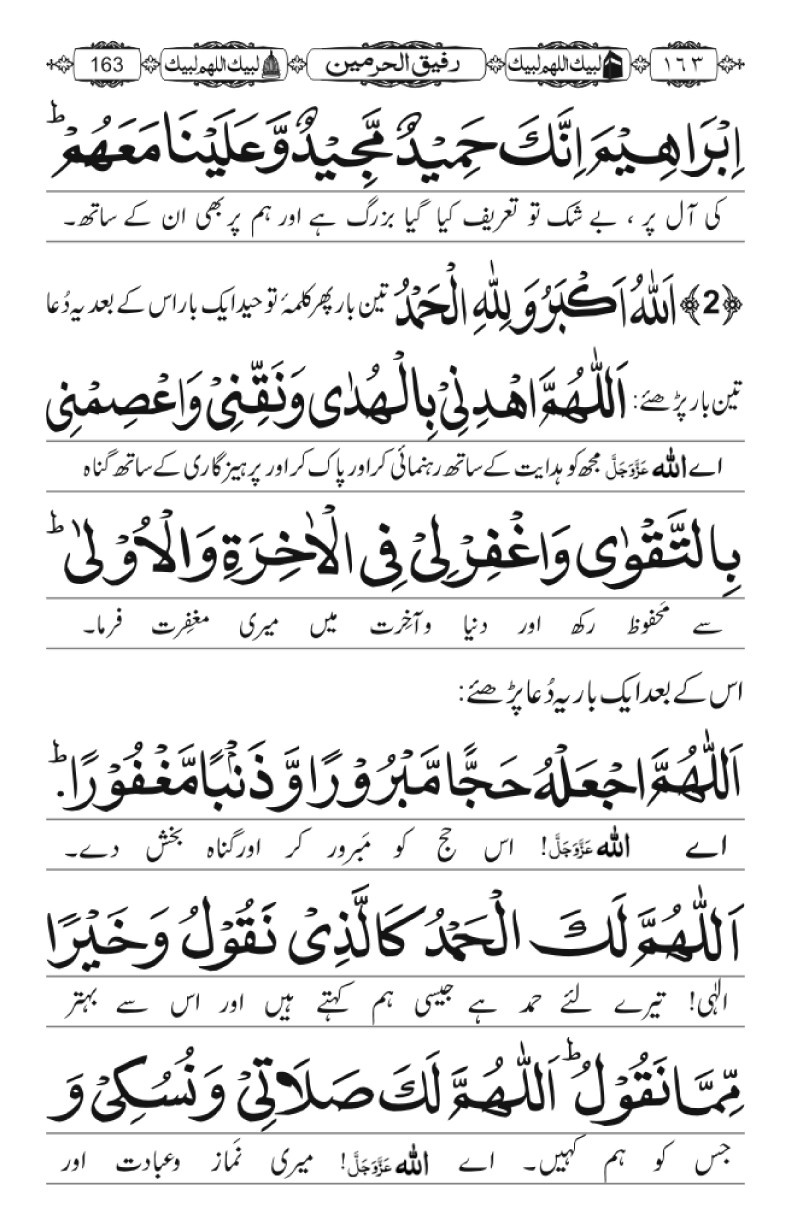 ١٦٣ لبیك اللهم لبیك رفیق الحرمین لبیك اللهم لبیك 163
اِبْرَاهِیْمَ اِنَّكَ حَمِیْدٌ مَّجِیْدٌ وَّعَلَیْنَا مَعَهُمْ ؕ
کی آل پر ، بے شک تو تعریف کیا گیا بزرگ ہے اور ہم پر بھی ان کے ساتھ۔
﴿2﴾ اَللّٰهُ اَكْبَرُ وَ لِلّٰهِ الْحَمْدُ تین بار پھر کلمۂ توحید ایک بار اس کے بعد یہ دُعا
تین بار پڑھئے: اَللّٰهُمَّ اهْدِنِیْ بِالْهُدٰی وَنَقِّنِیْ وَاعْصِمْنِی
اے اللہ عَزَّوَجَلَّ مجھ کو ہدایت کے ساتھ رہنمائی کر اور پاک کر اور پرہیزگاری کے ساتھ گناہ
بِالتَّقْوٰی وَاغْفِرْ لِیْ فِی الْاٰخِرَةِ وَالْاُوْلٰی ؕ
سے محفوظ رکھ اور دنیا وآخِرت میں میری مغفِرت فرما۔
اس کے بعد ایک بار یہ دُعا پڑھئے:
اَللّٰهُمَّ اجْعَلْهُ حَجًّا مَّبْرُوْرًا وَّ ذَنْۢبًا مَّغْفُوْرًا ؕ.
اے اللہ عَزَّوَجَلَّ! اس حج کو مَبرور کر اور گناہ بخش دے۔
اَللّٰهُمَّ لَكَ الْحَمْدُ كَالَّذِیْ نَقُوْلُ وَخَیْرًا
الٰہی! تیرے لئے حمد ہے جیسی ہم کہتے ہیں اور اس سے بہتر
مِّمَّا نَقُوْلُ ؕ اَللّٰهُمَّ لَكَ صَلَاتِیْ وَنُسُكِیْ وَ
جس کو ہم کہیں۔ اے اللہ عَزَّوَجَلَّ! میری نَماز وعبادت اور